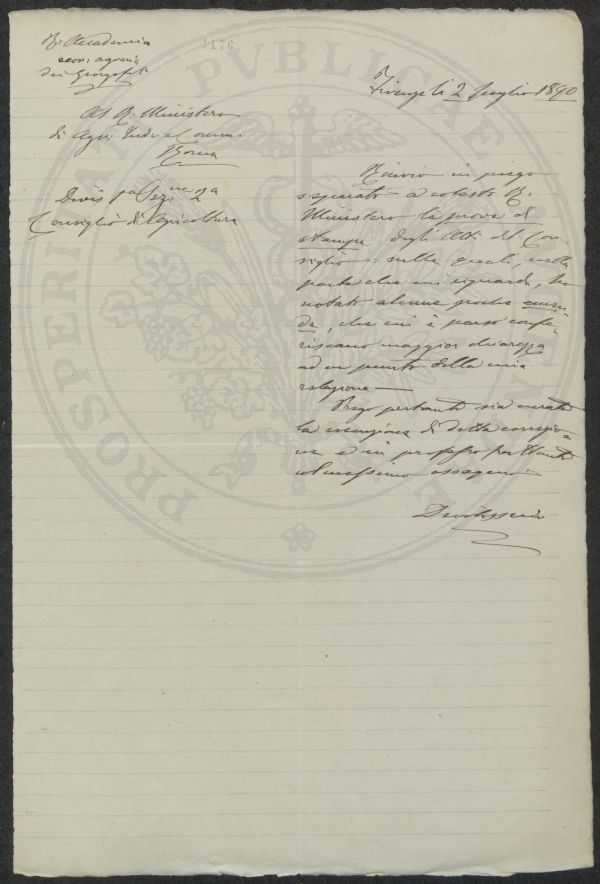 R. Accademia
econ: agraria
dei Georgofili
1176
Firenze li 2 Luglio 1890
Al R. Ministero
di Agr. Ind. e Comm.
Roma
Divis. 1a Sez.ne 2a
Consiglio di Agricoltura
Rinvio in piego
separato a cotesto R.
Ministero le prove di
stampe degli Atti del Con-
siglio: sulle quali, nella
parte che mi riguarda, ho
notato alcune poche
che mi è parso confe-
riscano maggior chiarezza
ad un punto della mia
relazione
Prego pertanto sia curata
la inserzione di dette correzio-
ni e mi professo frattanto
col massimo ossequio
PROSPERITATI PVBLICAE